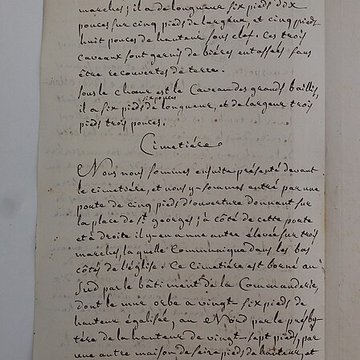 marches; il a de longueur six pieds dix
pouces sur cinq pieds de largeur, et cinq pieds
huit pouces de hauteur sous clef. Ces trois
caveaux sont garnis de bières entassés sans
être recouvertes de terre.
sous le chœur est le Caveau des grands baillis,
il a six pieds de longueur, et de largeur trois
pieds trois pouces.
Cimetiére
Nous nous sommes ensuite présenté devant
le cimetiére, et nous y sommes entré par une
porte de cinq pieds d'ouverture donnant sur
la place de St. georges; à côté de cette porte
et à droite il y en a une autre élevée sur trois
marches, laquelle Communique dans les bas
côtés de l'église; Ce Cimetiére est borné au
Sud par le bâtiment de la Commanderie,
dont le mur orbe a vingt six pieds de
hauteur égalisée, au Nord par le presby-
tère de la hauteur de vingt sept pieds, par
une autre maison de seize pieds de hauteur, et